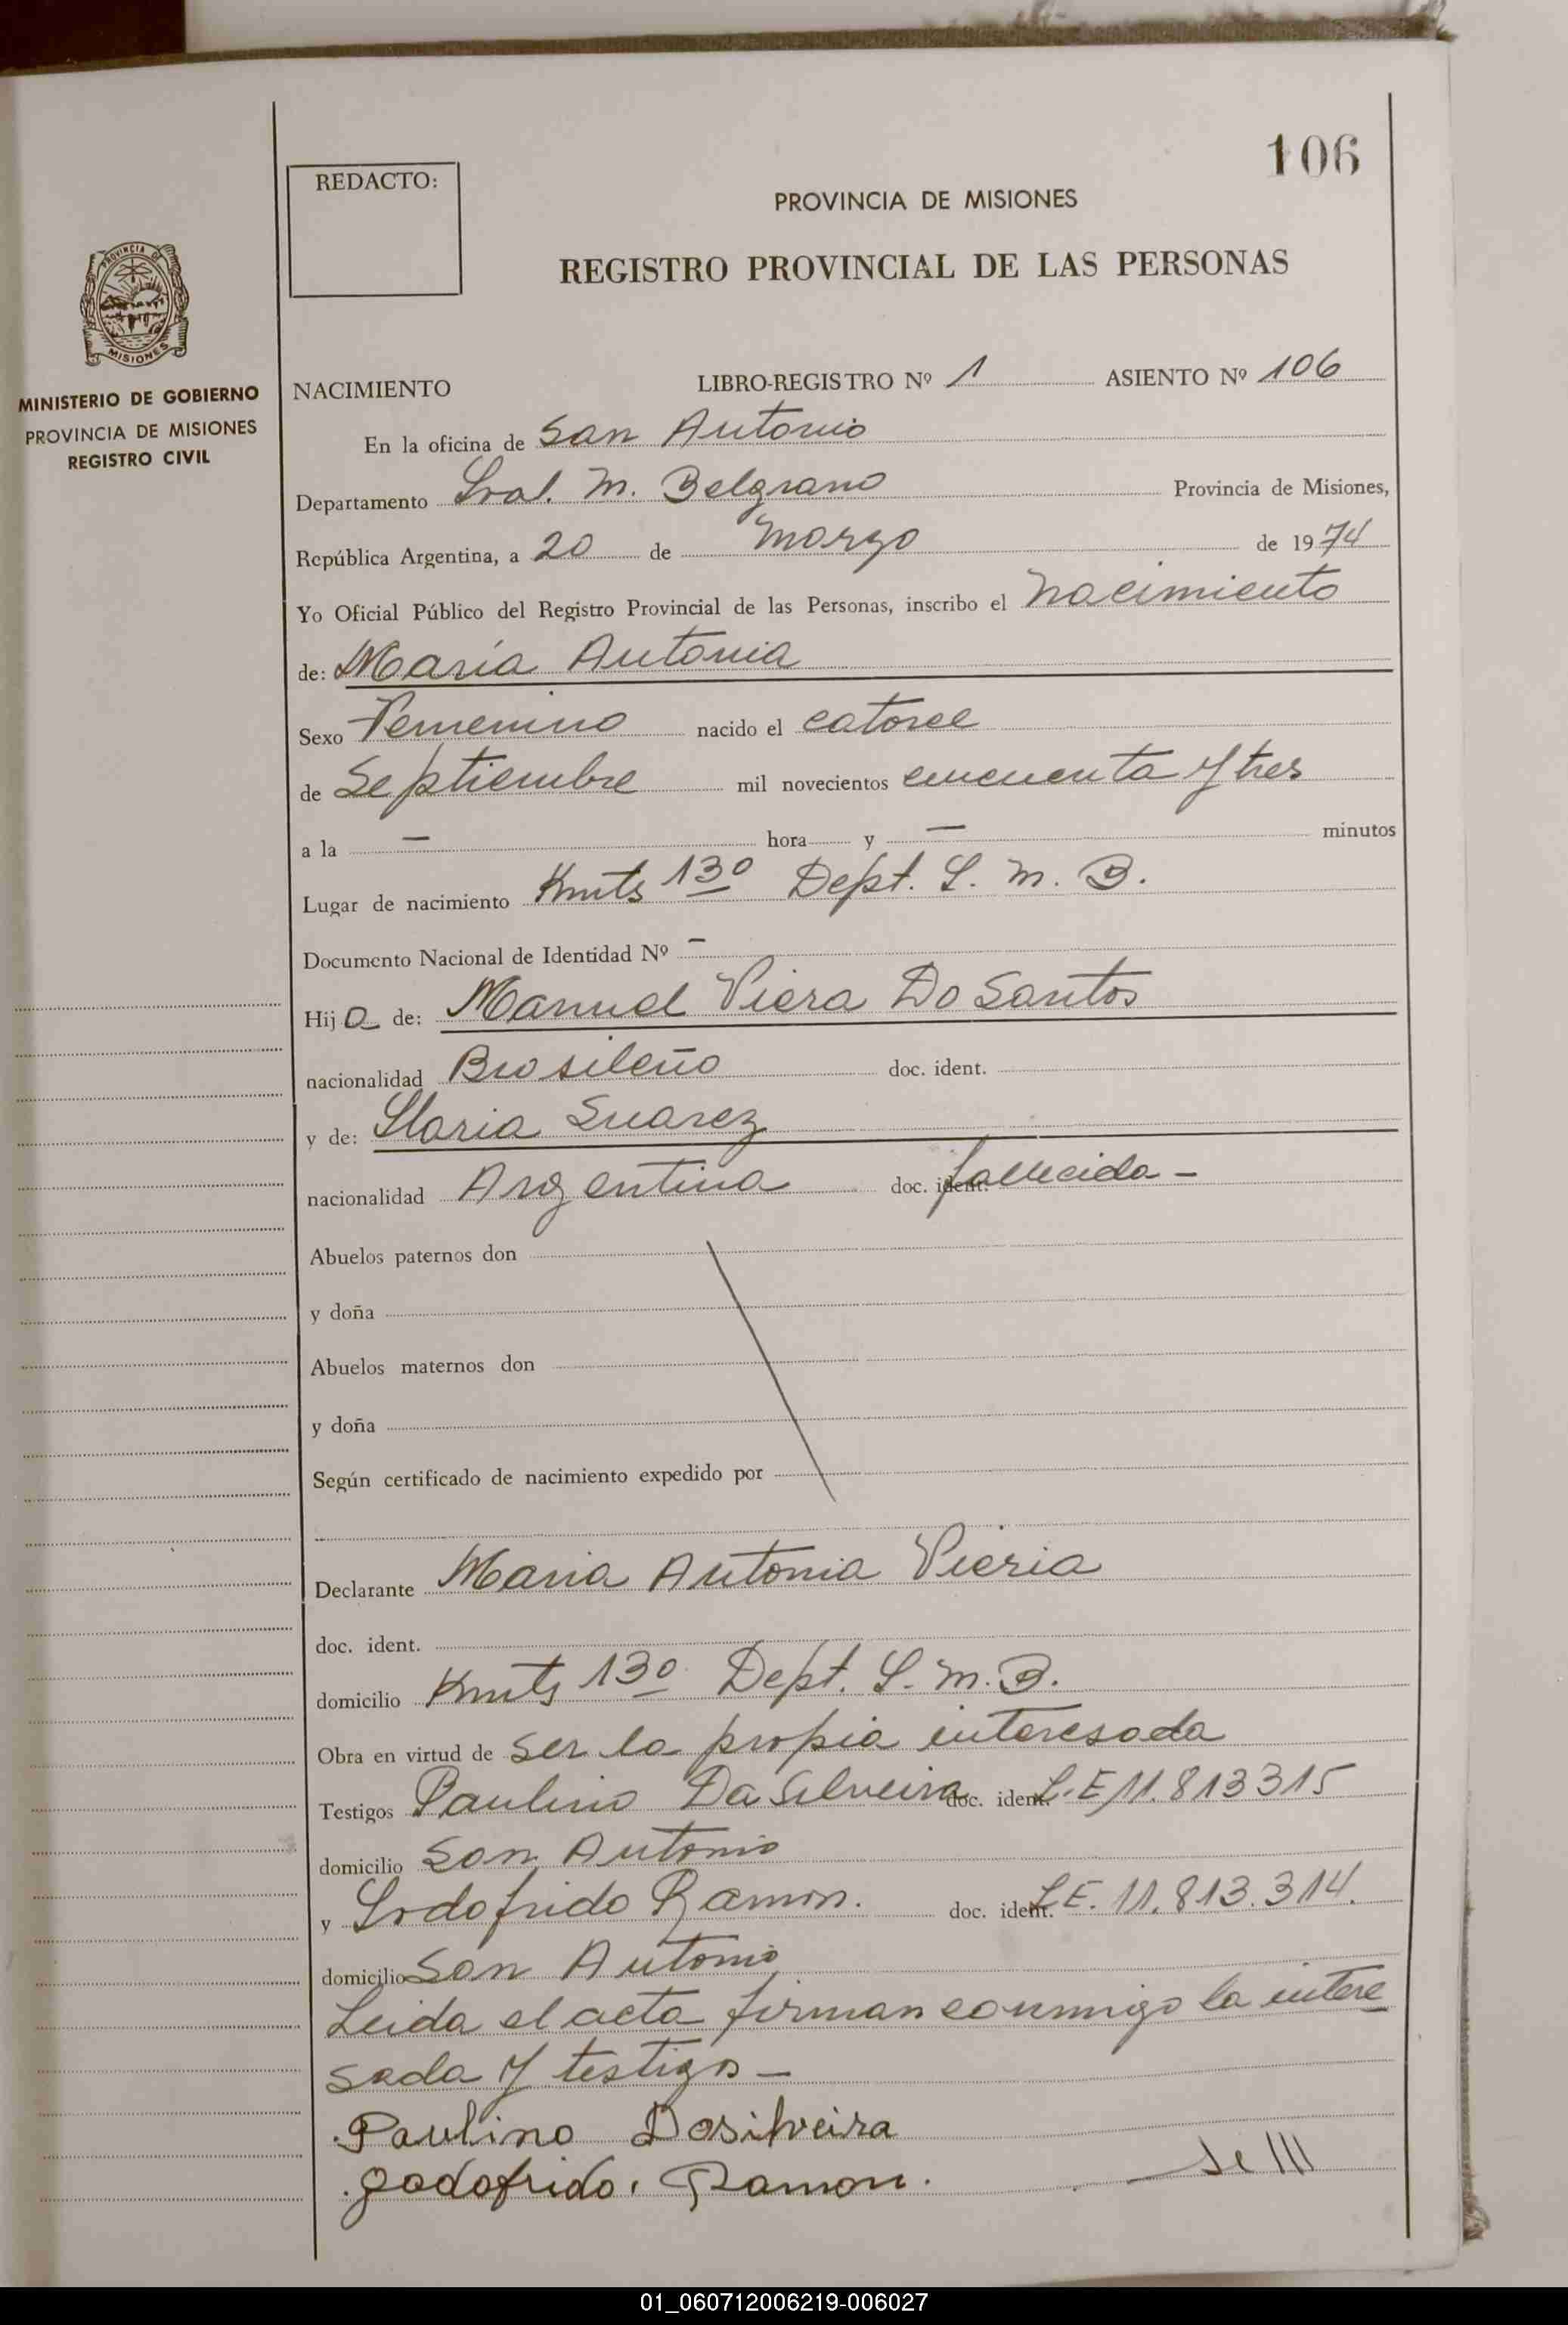 106
REDACTO:
PROVINCIA DE MISIONES
REGISTRO PROVINCIAL DE LAS PERSONAS
PROVINCIA DE
MISIONES
MINISTERIO DE GOBIERNO
PROVINCIA DE MISIONES
REGISTRO CIVIL
NACIMIENTO LIBRO-REGISTRO Nº 1 ASIENTO Nº 106
En la oficina de San Antonio
Departamento Gral. M. Belgrano Provincia de Misiones,
República Argentina, a 20 de Marzo de 1974
Yo Oficial Público del Registro Provincial de las Personas, inscribo el Nacimiento
de: María Antonia
Sexo Femenino nacido el catorce
de Septiembre mil novecientos cincuenta y tres
a la — hora y — minutos
Lugar de nacimiento Kmts 130 Dept. G. M. B.
Documento Nacional de Identidad Nº –
Hija de: Manuel Viera Do Santos
nacionalidad Brasileño doc. ident.
y de: Suarez
nacionalidad Argentina doc. ident. fallecida –
Abuelos paternos don
y doña
Abuelos maternos don
y doña
Según certificado de nacimiento expedido por
Declarante Maria Antonia Vieria
doc. ident.
domicilio Kmts 130 Dept. G. M. B.
Obra en virtud de ser la propia interesada
Testigos Paulino Da Silveira doc. ident. L.E 11.813315
domicilio San Antonio
y Godofrido Ramon. doc. ident. L.E. 11.813.314.
domicilio San Antonio
Leida el acta firman conmigo la intere
sada y testigos –
Paulino Dasilveira
Godofrido. Ramon.
01_060712006219-006027